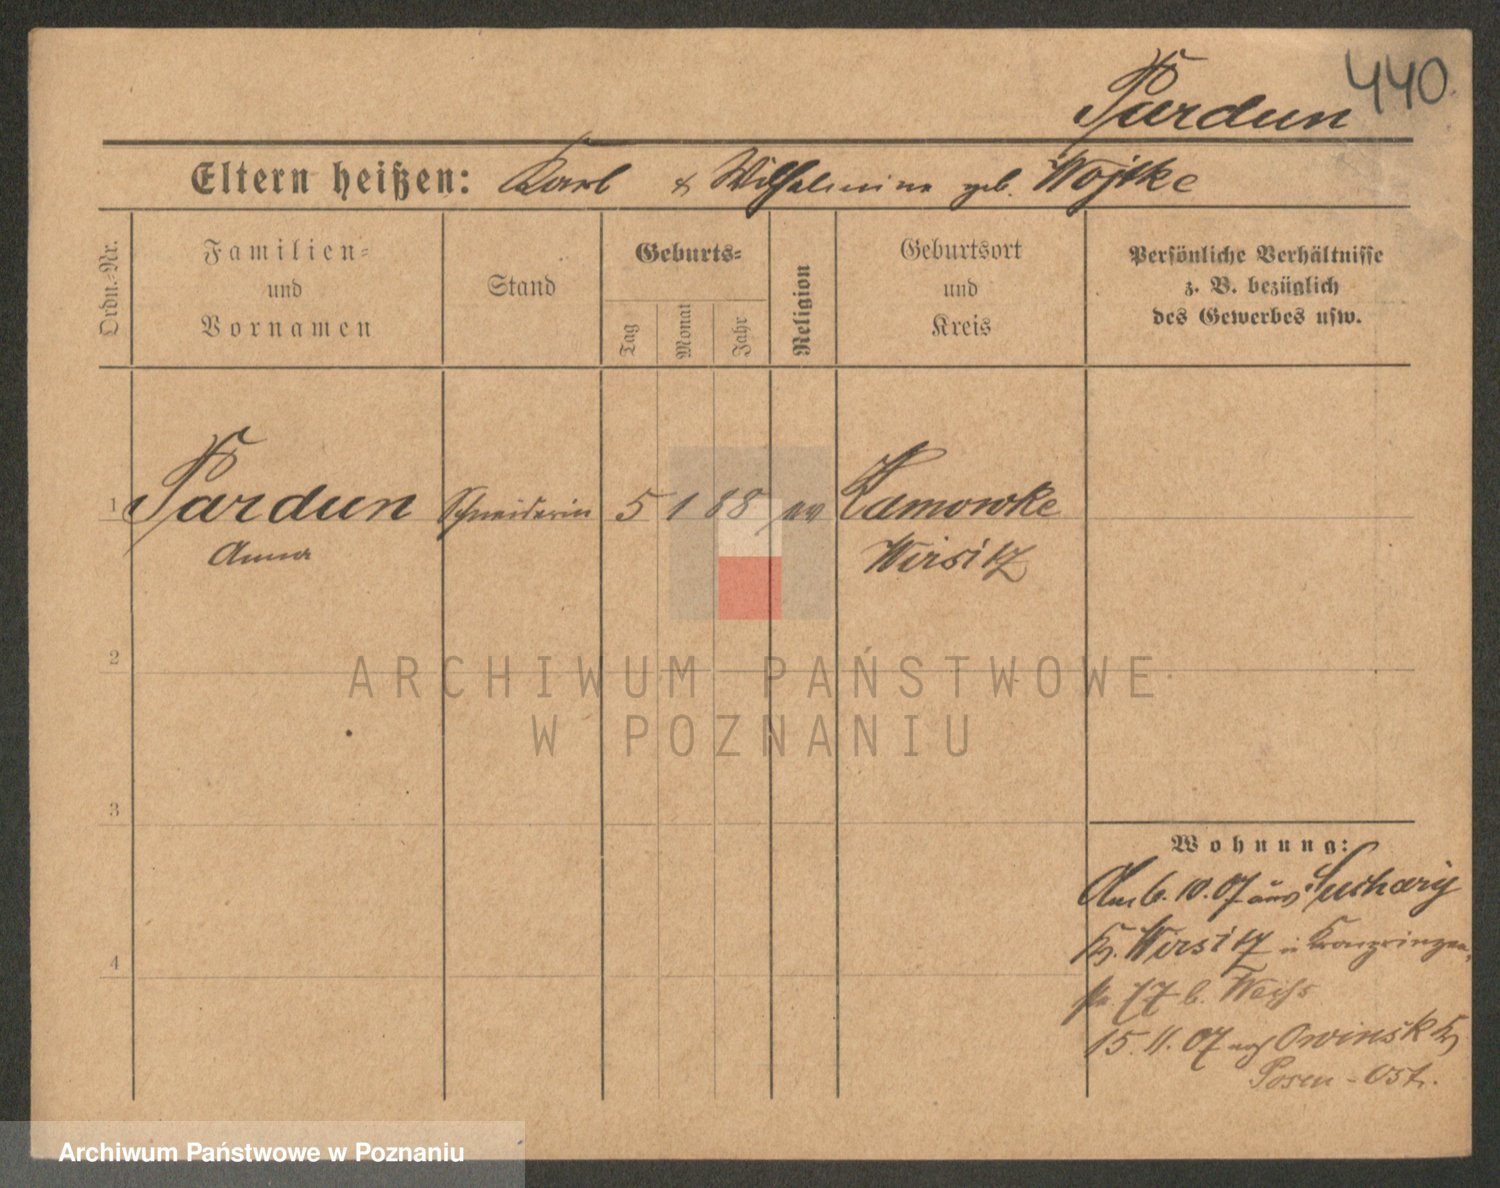 440.
Pardun
Eltern heißen: Karl & Wilhelmine geb. Wojtke
Ordn.-Nr.
Familien-
und
Vornamen
Stand
Geburts-
Tag
Monat
Jahr
Religion
Geburtsort
und
Kreis
Persönliche Verhältnisse
z. B. bezüglich
des Gewerbes usw.
1 Pardun Schneiderin 5 1 88 ev Zamowke
Anna Wirsitz
2
ARCHIWUM PAŃSTWOWE
W POZNANIU
3
Wohnung:
Am 6. 10. 07 aus Suchary
4
Kr. Wirsitz in Kronprinzen
str. 17 b. Weiss
15. 11. 07 nach Owinsk Kr
Posen-Ost.
Archiwum Państwowe w Poznaniu